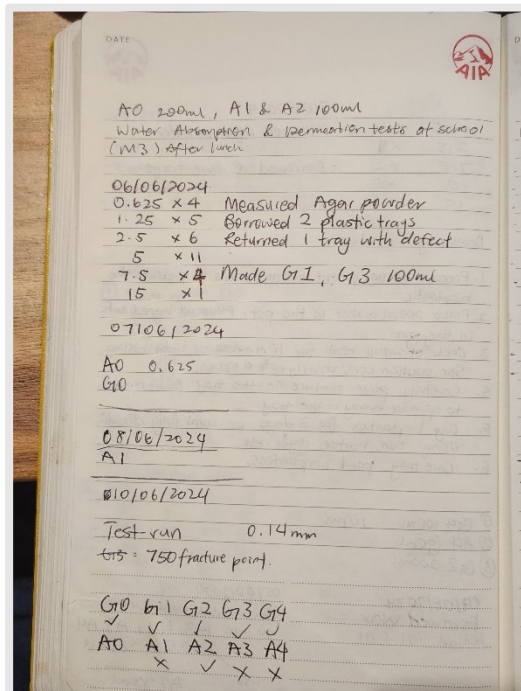 DATE
AIA
A0 200ml, A1 & A2 100ml
Water Absorption & permeation tests at school
(M3) After lunch
06/06/2024
0.625 x 4 Measured Agar powder
1.25 x 5 Borrowed 2 plastic trays
2.5 x 6 Returned 1 tray with defect
5 x 11
7.5 x 4 Made G1, G3 100ml
15 x 1
07/06/2024
A0 0.625
G0
08/06/2024
A1
10/06/2024
Test-run 0.14mm
G5 = 750 fracture point.
G0 G1 G2 G3 G4
✓ ✓ ✓ ✓ ✓
A0 A1 A2 A3 A4
x ✓ x x